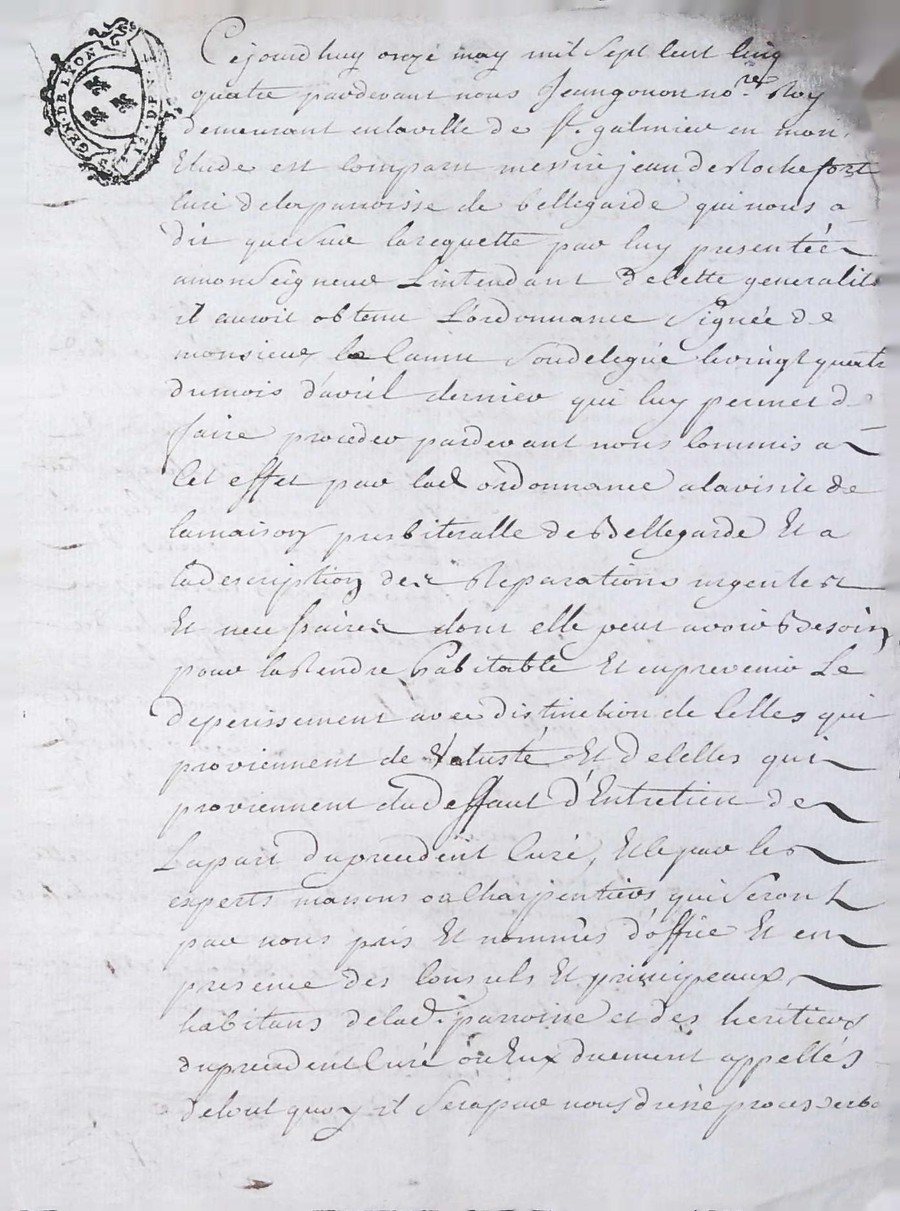 GEN. DE LYON
Cejourdhuy onze may mil sept cent cinq
quatre pardevant nous Jean gonon no.re Roy
demeurant enlaville de st. galmier en mon
Etude est comparu messire jean de Rochefort
curé delaparroisse de bellegarde qui nous a
dit que sur larequette par luy presentée
amonseigneur L'intendant de cette generalité
il auroit obtenu L'ordonnance signée de
monsieur le camu soudelegué levingt quatre
dumois d'avril dernier qui luy permet de
faire proceder pardevant nous commis a
Cet effet par lad ordonnance alavisite de
lamaison presbiteralle de Bellegarde Et a
ladescription des Reparations urgentes
Et necessaires dont elle peut avoir Besoin
pour laRendre habitable Et enprevenir Le
deperissement avec distinction de Celles qui
proviennent de Vetusté Et decelles qui
proviennent dudeffaut d'Entretien de
Lapart dupreccedent Curé, Et le par les
experts massons ou Charpentiers qui seront
par nous pris Et nommés d'office Et en
presence des Consuls Et principeaux
habitans delad. parroisse et des heritiers
dupreccedent Curé ou Eux duement appellés
detout quoy il sera par nous dressé proces verba